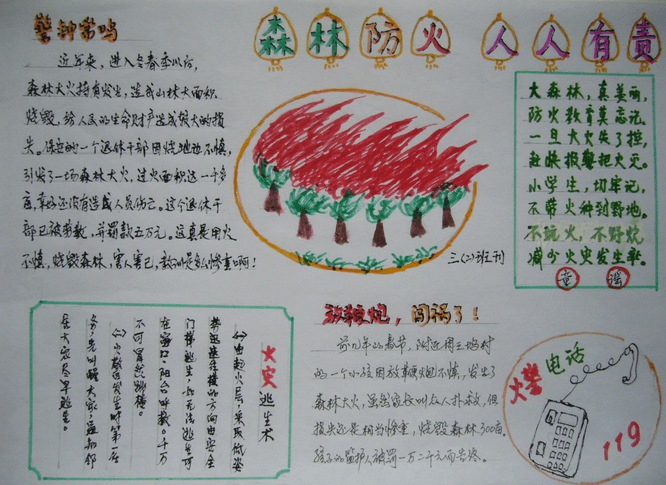 森林防火 人人有责
警钟常鸣
近年来，进入冬春季以后，
森林大火持有发生，造成山林大面积
烧毁，给人民的生命财产造成很大的损
失。保定的一个退休干部因烧地边不慎，
引发了一场森林大火，过火面积达一千多
亩，幸好还没有造成人员伤亡。这个退休干
部已被拘教，并罚款五万元，这真是用火
不慎，烧毁森林，害人害己，教训是多么惨重啊！
三(2)班主刊
大森林，真美丽，
防火教育莫忘记，
一旦大火失了控，
赶快报警把火灭。
小学生，切牢记，
不带火种到野地。
不玩火，不野炊
减少火灾发生率。
童 谣
火灾逃生术
(一)由起火层，采取低姿
势迅速往楼的方向由安全
门梯逃生，如无法逃生可
在窗口、阳台呼救。千万
不可冒然跳楼。
(二)火教发生时第一层
务，先叫醒大家，通知邻
居大家尽早逃生。
放鞭炮，闯祸了！
前几年的春节，附近周三地村
的一个小孩因放鞭炮不慎，发生了
森林大火，虽然家长叫众人扑救，但
损失还是相当惨重，烧毁森林300亩，
孩子的监护人被罚一万二千元而告终。
火警电话
119